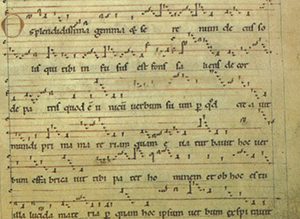 O splendidissima gemma & se re num de cus so
lis qui tibi in fu sus est fons sa liens de cor
de pa tris quod ē u nicū uerbum su um p qđ cre a uit
mundi pri ma ma te riam quam e ua tur bauit hoc uer
bum effa brica uit tibi pa ter ho minem et ob hoc es tu
illa lucida mate ria p quam hoc ipsum uer bum exspi rauit